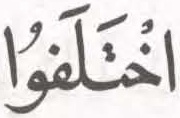 اخْتَلَفُوا